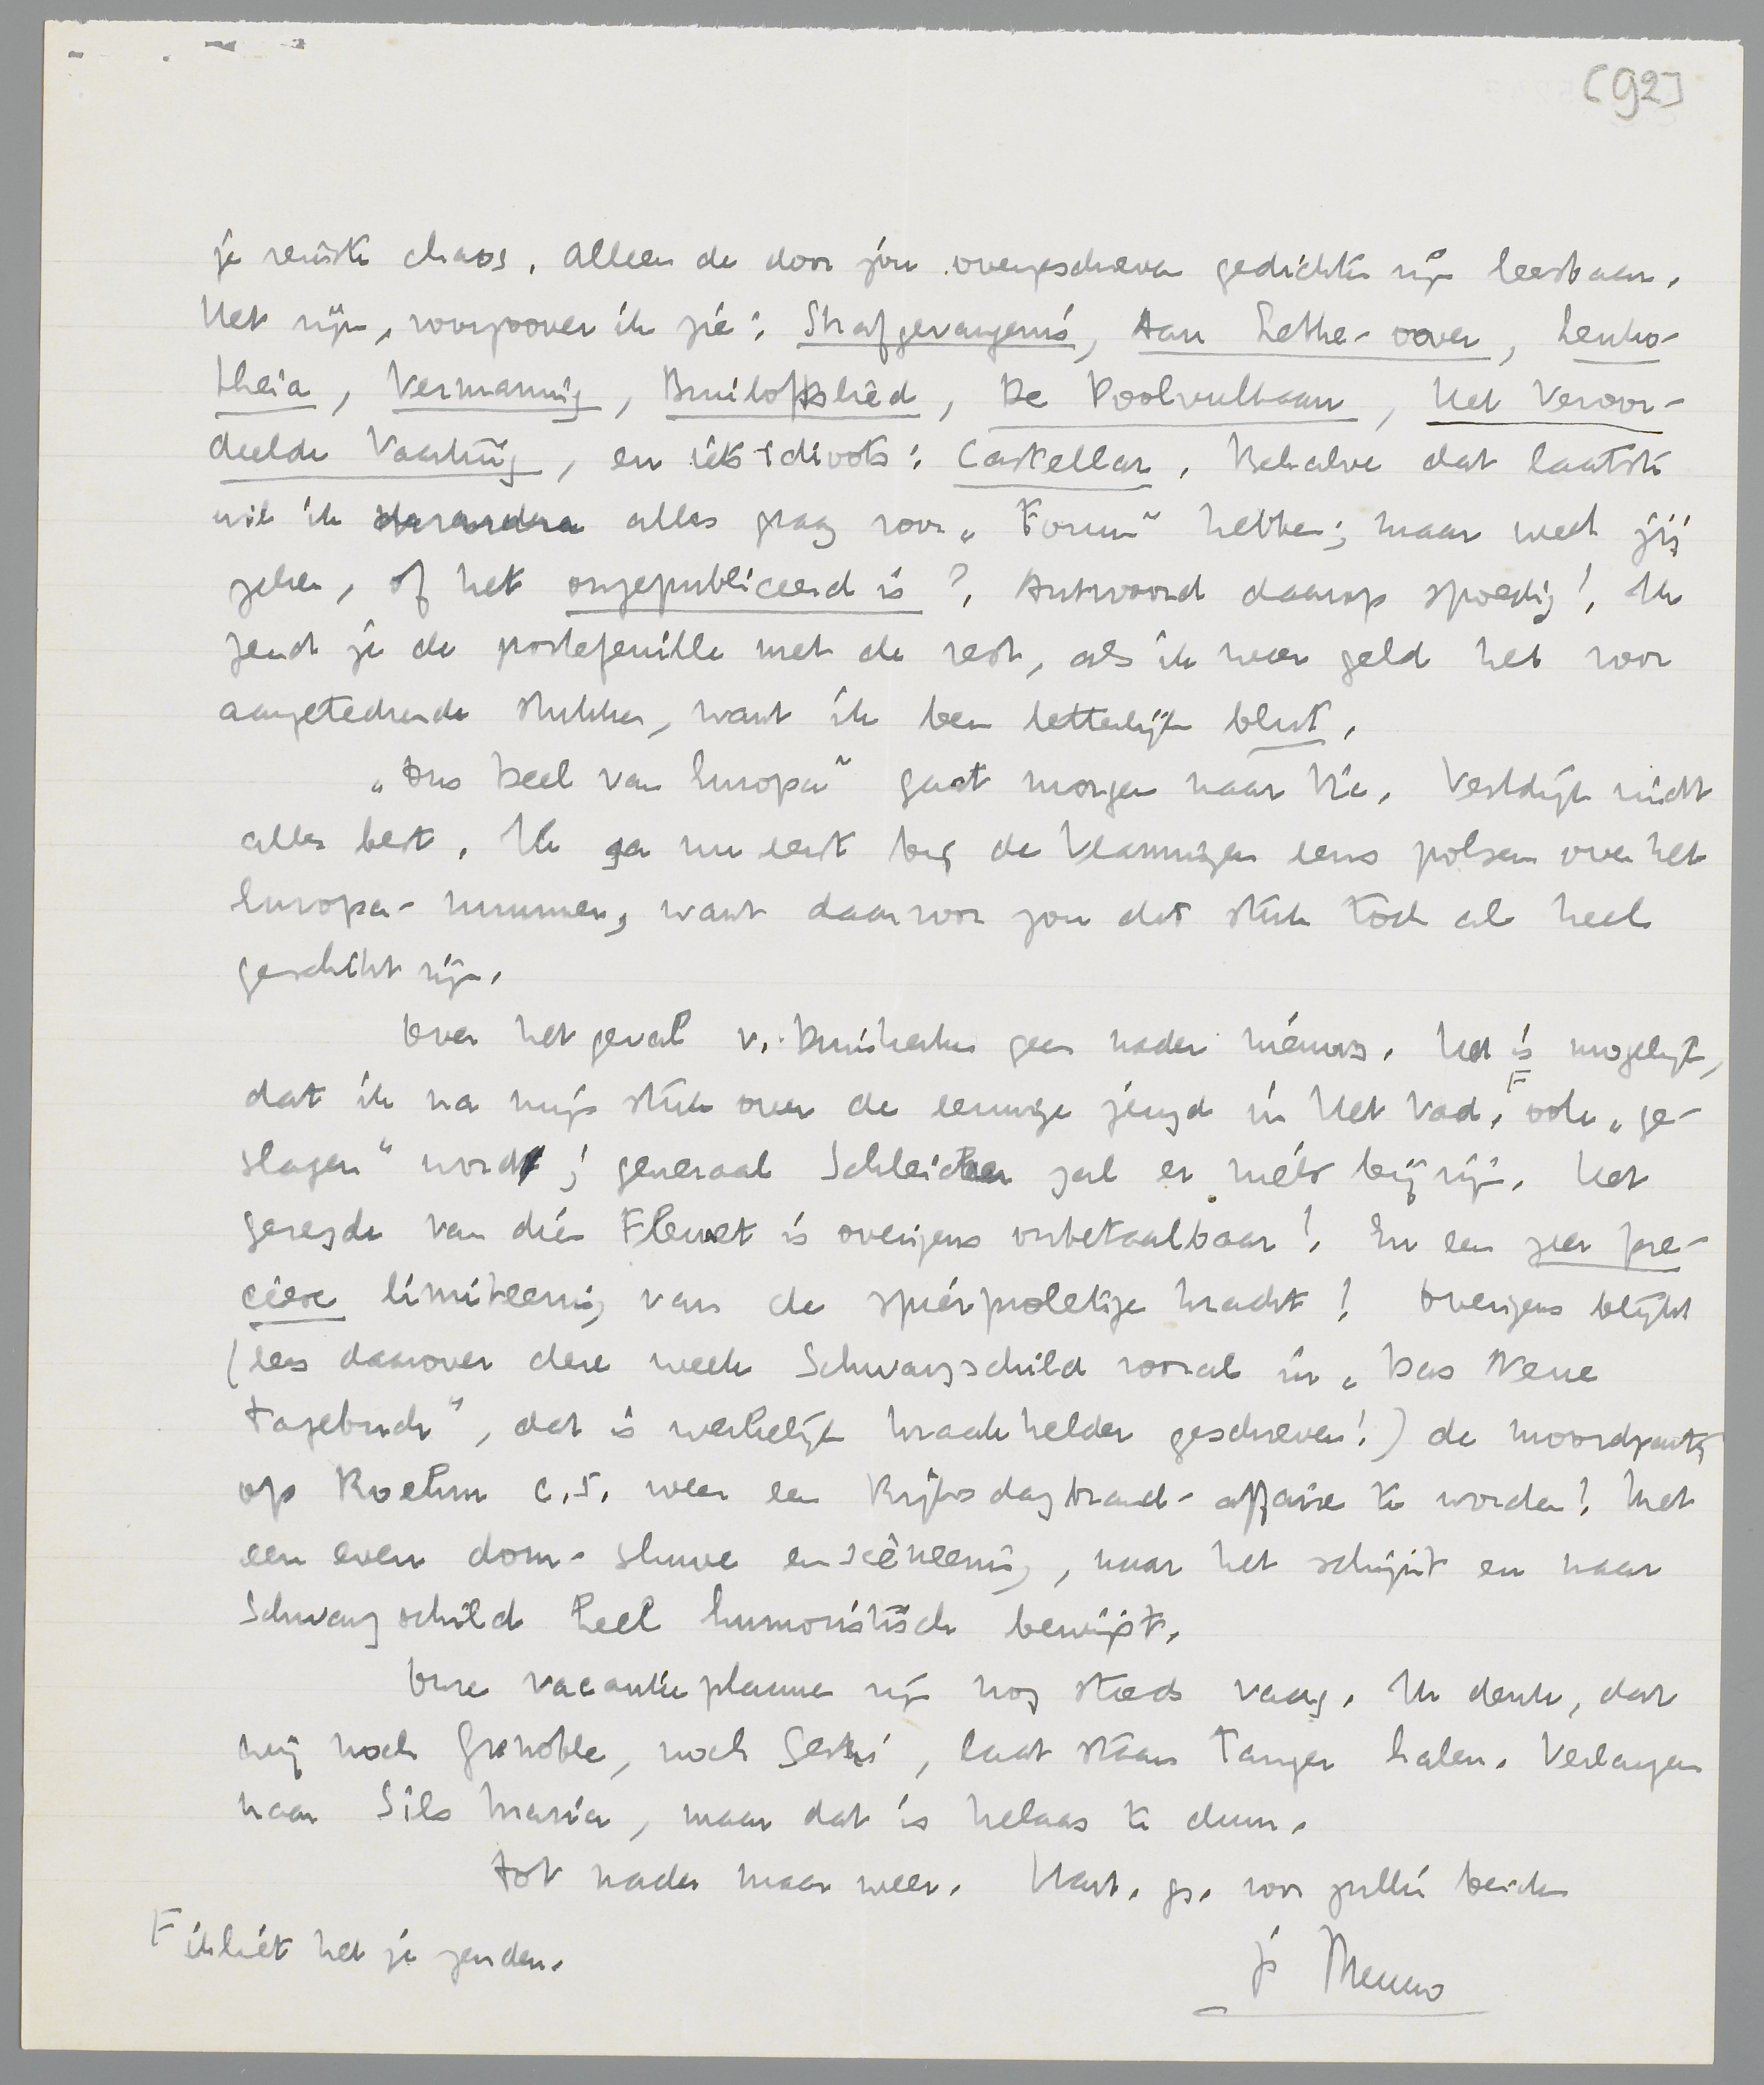 [92]
je reinste chaos. Alleen de door jou overgeschreven gedichten zijn leesbaar.
Het zijn, voorzoover ik zie: Strafgevangenis, Aan Lethe-oever, Leuko-
theia, Vermanning, Bruiloftslied, De Poolvulkaan, Het Veroor-
deelde Vaartuig, en iets idioots: Castellar. Behalve dat laatste
wil ik alles graag voor „Forum” hebben; maar weet jij
zeker, of het ongepubliceerd is? Antwoord daarop spoedig! Ik
zend je de portefeuille met de rest, als ik weer geld heb voor
aangeteekende stukken, want ik ben letterlijk blut.
„Ons Deel van Europa” gaat morgen naar Vic. Vestdijk vindt
alles best. Ik ga nu eerst bij de Vlamingen eens polsen over het
Europa-nummer, want daarvoor zou dat stuk toch al heel
geschikt zijn.
Over het geval v. Duinkerken geen nader nieuws. Het is mogelijk,
dat ik na mijn stuk over de eeuwige jeugd in Het Vad. F ook „ge-
slagen” word; generaal Schleicher zal er niets bij zijn. Het
gezegde van dien Flewet is overigens onbetaalbaar! En een zeer pre-
ciese limiteering van de spierproletige kracht! Overigens blijkt
(lees daarover deze week Schwarzschild vooral in „Das Neue
Tagebuch”, dat is werkelijk kraakhelder geschreven!) de moordpartij
op Roehm c.s. weer een Rijksdagbrand-affaire te worden! Met
een even dom-sluwe ensceneering, naar het schijnt en naar
Schwarzschild heel humoristisch bewijst.
Onze vacantieplannen zijn nog steeds vaag. Ik denk, dat
wij noch Grenoble, noch Gesto', laat staan Tanger halen. Verlangen
naar Sils Maria, maar dat is helaas te duur.
Tot nader maar weer. Hart. gr. voor jullie beiden
je Menno
F ik liet het je zenden.